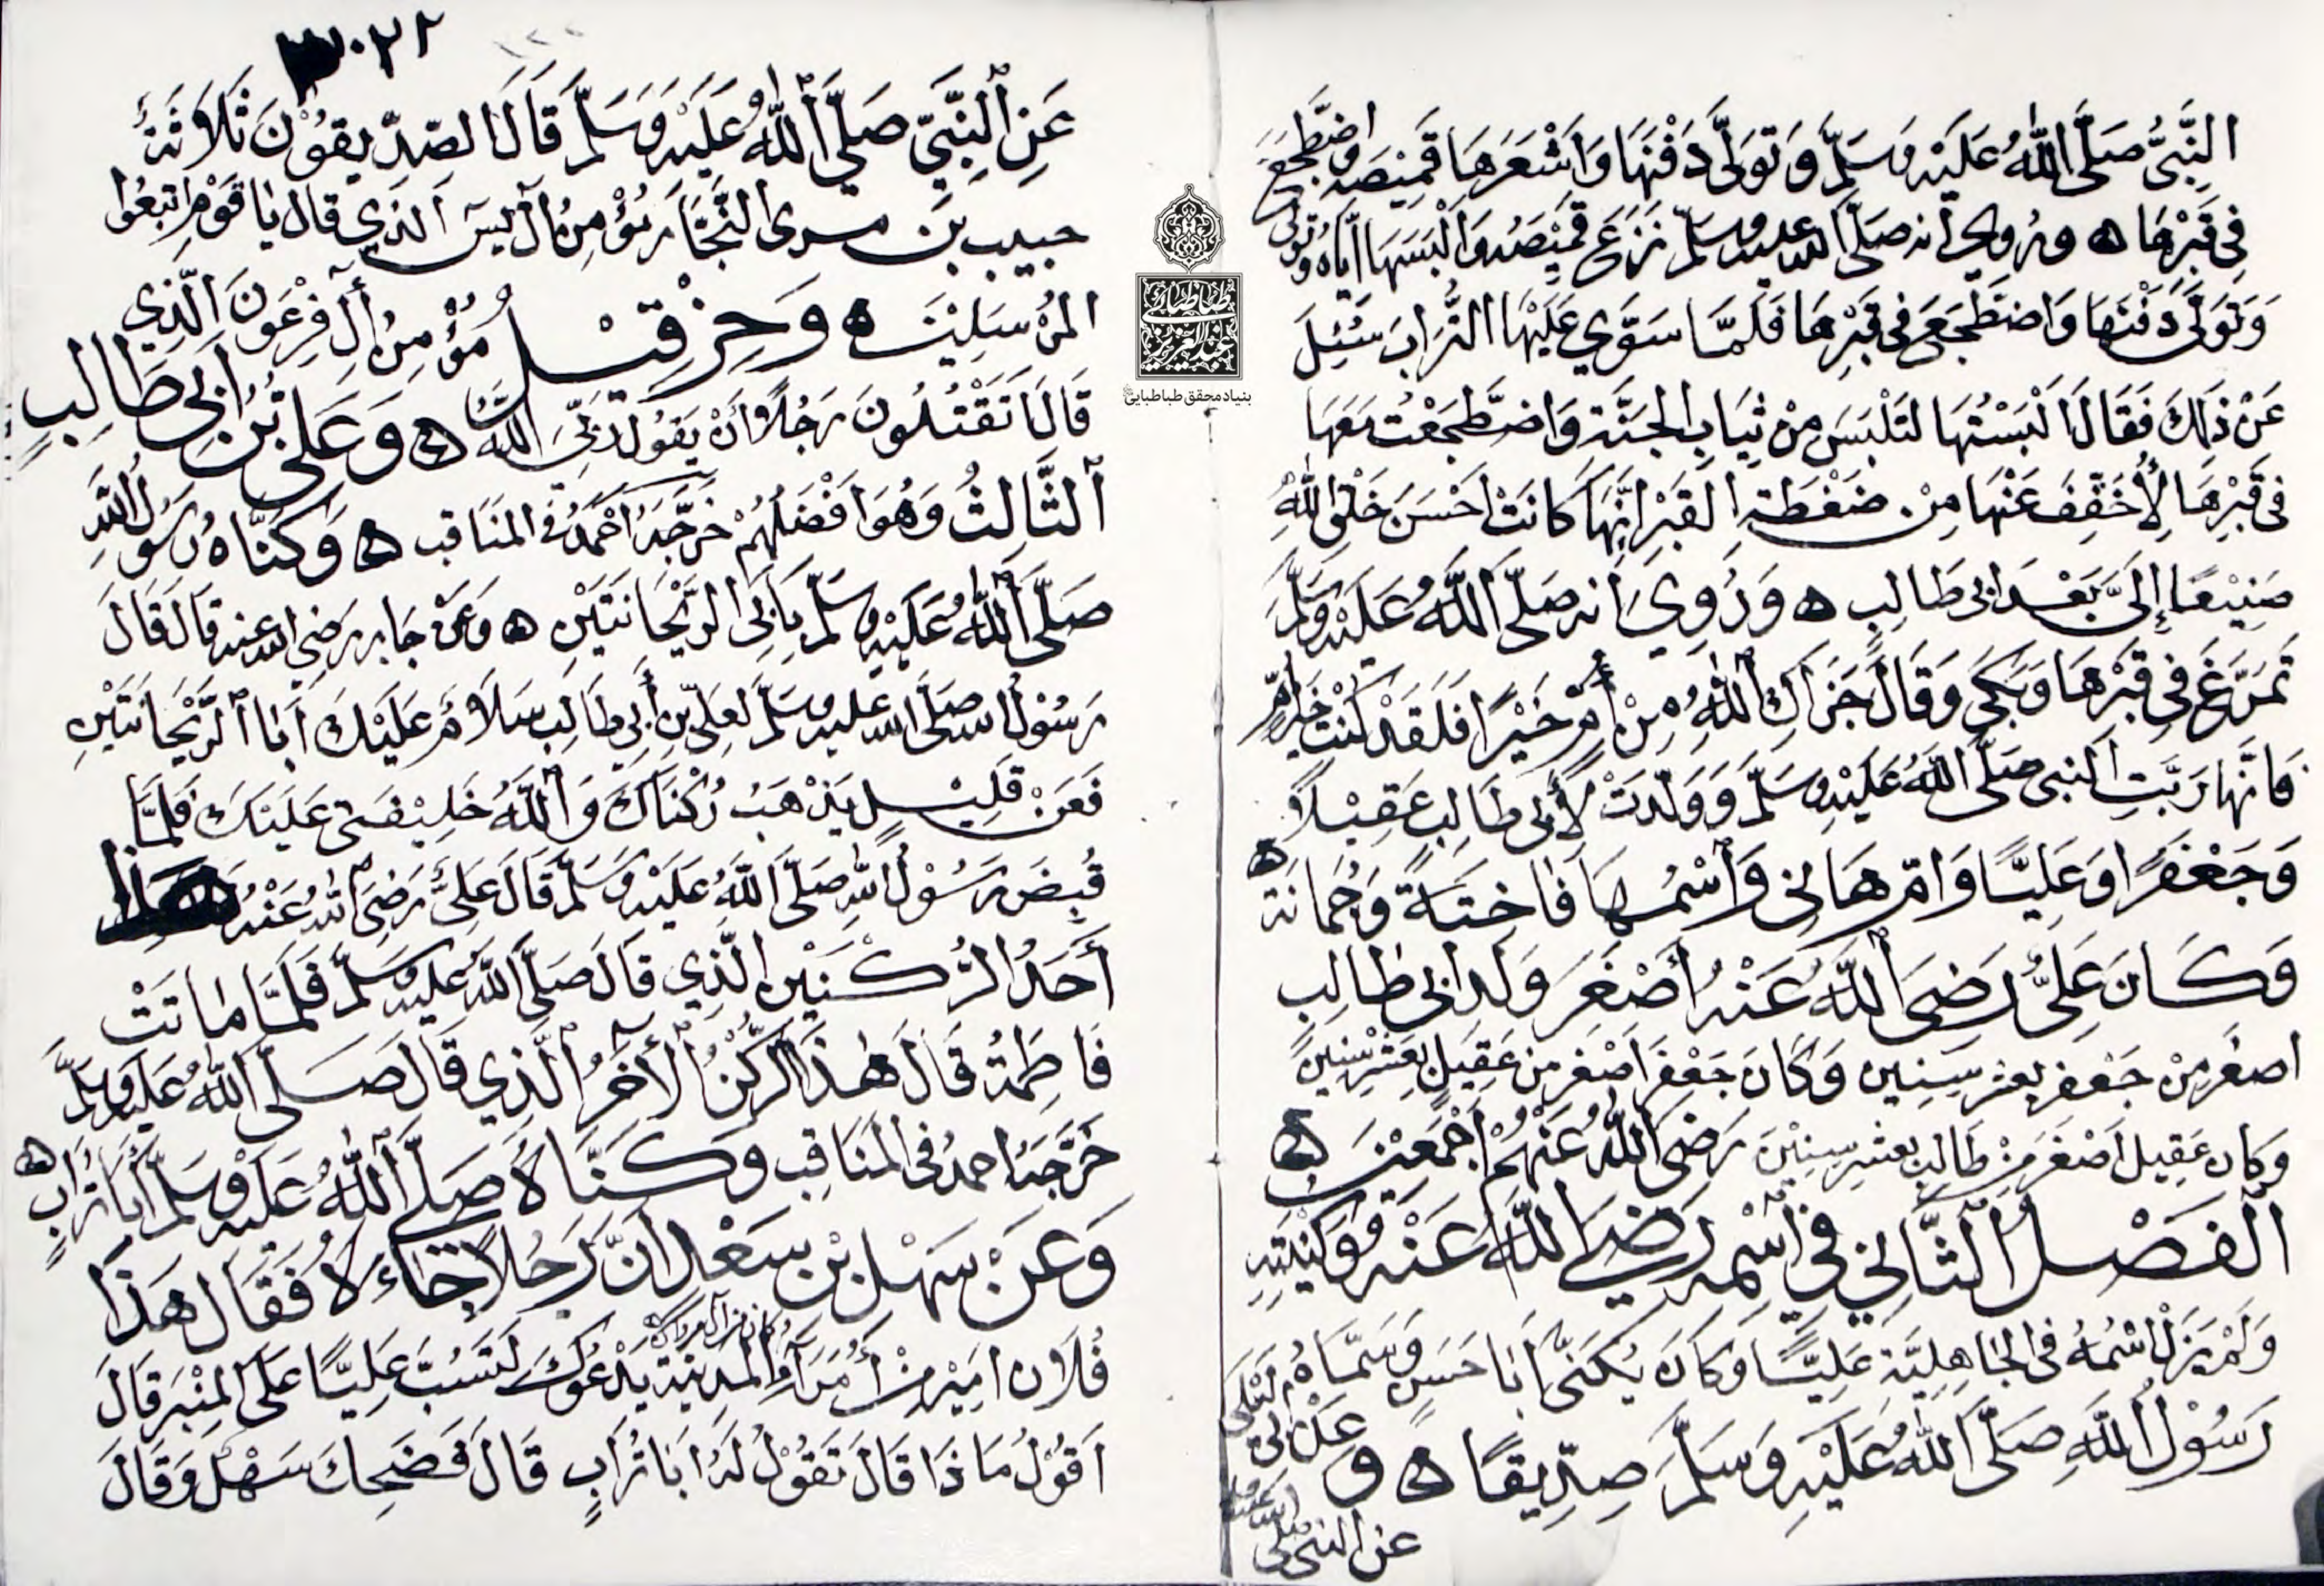 النَّبِيُّ صَلَّى اللهُ عَلَيْهِ وَسَلَّمَ وَتَوَلَّى دَفْنَهَا وَاَشْعَرَهَا قَمِيْصَهُ وَاضْطَجَعَ
فِي قَبْرِهَا ه وروي أنه صَلَّى الله عليه وسلم نَزَعَ قَمِيْصَهُ وَاَلْبَسَهَا اِيَّاهُ وتولى
وَتَوَلَّى دَفْنَهَا وَاضْطَجَعَ فِي قَبْرِهَا فَلَمَّا سَوَّي عَلَيْهَا التُّرَابَ سُئِلَ
عَنْ ذَلِكَ فَقَالَ اَلْبَسْتُهَا لتَلْبَسَ مِنْ ثِيَابِ الجَنَّةِ وَاضطَجَعْتُ مَعَهَا
فى قَبْرِهَا لِأُخَفِّفَ عَنْهَا مِنْ ضَغْطَةِ القَبْرِ اِنَّهَا كَانَتْ اَحْسَنَ خَلْقِ اللهِ
صَنِيْعًا إِلَيَّ بَعْدَ ابى طَالِبٍ ه وَرُوِيَ انه صَلَّى اللَّهُ عَلَيْهِ وَسَلَّمَ
تَمَرَّغَ فِي قَبْرِهَا وَبَكَى وَقَالَ جَزَاكِ اللهُ مِنْ أُمٍّ خَيْرًا فَلَقَدْ كُنْتِ خَيْرَ أُمٍّ
فَانَّهَا رَبَّتِ النبى صَلَّى اللهُ عَلَيْهِ وَسَلَّمَ وَوَلَدَتْ لِأَبِى طَالِبٍ عَقِيْلًا
وَجَعْفَرًا وَعَلِيًّا وَامّ هَانِى وَاسْمُهَا فَاخِتَةً وَجُمَانَة ه
وَكَانَ عَلِيٌّ رَضِيَ اللَّهُ عَنْهُ أَصْغَرَ وَلد ابى طالِبٍ
اصغَر مِنْ جَعْفرٍ بعشر سِنِين وَكَانَ جَعْفَر اَصْغر من عَقِيلٍ بِعَشْرِ سِنِينَ
وَكان عَقِيل اَصْغَرَ مِنْ طَالب بعشر سِنِيْنَ رَضِيَ اللَّهُ عَنْهُمْ اَجْمَعِيْنَ ه
الفَصْلُ الثَّانِي فِي اسْمِهِ رَضِيَ اللَّهُ عَنْهُ وَكُنْيَتِهِ
وَلَمْ يَزَلْ اسْمُهُ فى الجَاهِلِيَّةِ عَلِيًّا وكَانَ يُكَنَّى اَبَا حَسَنٍ وَسَمَّاهُ
رَسُوْلُ اللهِ صَلَّى اللهُ عَلَيْهِ وَسَلَّمَ صِدِّيقًا ه و
عن النبى صلى
٣٠٢٢
عَنِ النَّبِيِّ صَلَّى اللهُ عَلَيْهِ وَسَلَّمَ قَالَ الصّدِّيقُوْنَ ثَلَاثَةٌ
حبيب بن مرى النَّجَّار مُؤْمِنُ آل يس اَلَّذِي قال يَا قَوْمِ اتبعُوا
المُرْسَلِيْنَ ه وَحِزْقِيْلُ مُؤْمِنُ أَلِ فِرْعَوْنَ الَّذِي
قَالَ اَتَقْتُلُونَ رَجُلاً أَنْ يَقُولَ رَبِّيَ اللهُ ه وَعَلِيُّ بْنُ اَبِي طَالِبٍ
اَلثَّالِثُ وَهُوَ اَفْضَلُهُمْ خَرَّجَهُ اَحْمَدُ فى المَنَاقب ه وَكَنَّاهُ رَسُولُ اللَّهِ
صَلَّى اَللهُ عَلَيْهِ وسَلَّمَ بِاَبِي الرَّيْحَانَتَيْنِ ه وَعَنْ جَابِر رَضِيَ الله عنه قَالَ قَالَ
رَسُوْلُ الله صَلَّى الله عليه وسَلَّمَ لعَلِيِّ بنِ أَبِي طَالِب سَلَامٌ عَلَيْكَ اَبَا اَلرَّيْحَانَتَيْنِ
فَعَنْ قَلِيْلٍ يَذْهَبُ رُكْنَاكَ وَاللَّهُ خَلِيْفَتِي عَلَيْكَ فَلَمَّا
قُبِضَ رَسُوْلُ اللهِ صَلَّى اللَّهُ عَلَيْهِ وَسَلَّمَ قَالَ عَلِيٌّ رَضِيَ اللهُ عَنْهُ هَذَا
أَحَدُ الرُّكْنَيْنِ الَّذِي قَالَ صَلَّى اَللَّهُ عَلَيْهِ وسلَّمَ فَلَمَّا مَاتَتْ
فَاطِمَةُ قَالَ هٰذَا الرُّكْنُ الأَخَرُ الَّذِي قَالَ صَلَّى اللهُ عَلَيْهِ وَسَلَّمَ
خَرَّجَهُ احمدُ فى المَنَاقِبِ وَكَنَّاهُ صَلَّى اَللَّهُ عَلَيْهِ وَسَلَّمَ أَبَا تُرَابٍ ه
وَعَنْ سَهْلِ بْنِ سَعْدٍ اَنَّ رَجُلًا جَاءَهُ فَقَالَ هَذَا
فُلَان اَمِيْرٌ مِنْ أُمَرَاءِ المَدِينَة يَدْعُوْكَ لتَسُبَّ عَلِيًّا عَلَى المِنْبَرِ قَالَ
اَقُوْلُ مَاذَا قَالَ تَقُوْلُ لَهُ اَبَا تُرَابٍ قَالَ فَضَحِكَ سَهْلٌ وَقَالَ
بنیاد محقق طباطبایی